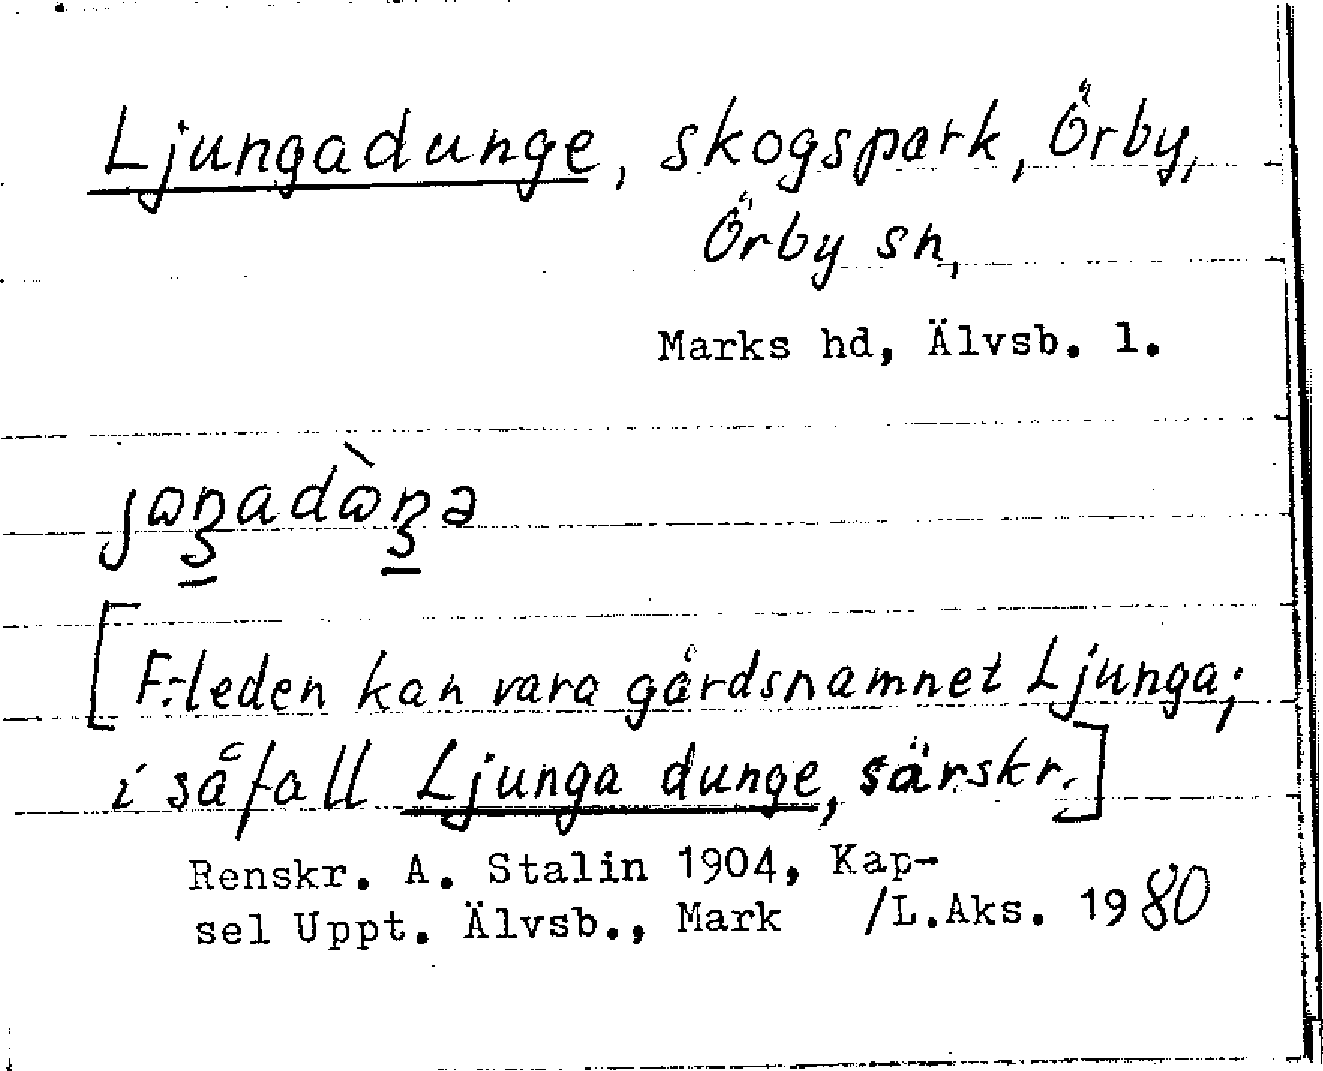 Ljungadunge, skogspark, Örby,
Örby sn,
Marks hd, Älvsb. l.
[F.-leden kan vara gårdsnamnet Ljunga;
i såfall Ljunga dunge, särskr.]
Renskr. A. Stalin 1904, Kap-
sel Uppt. Älvsb., Mark /L.Aks. 1980